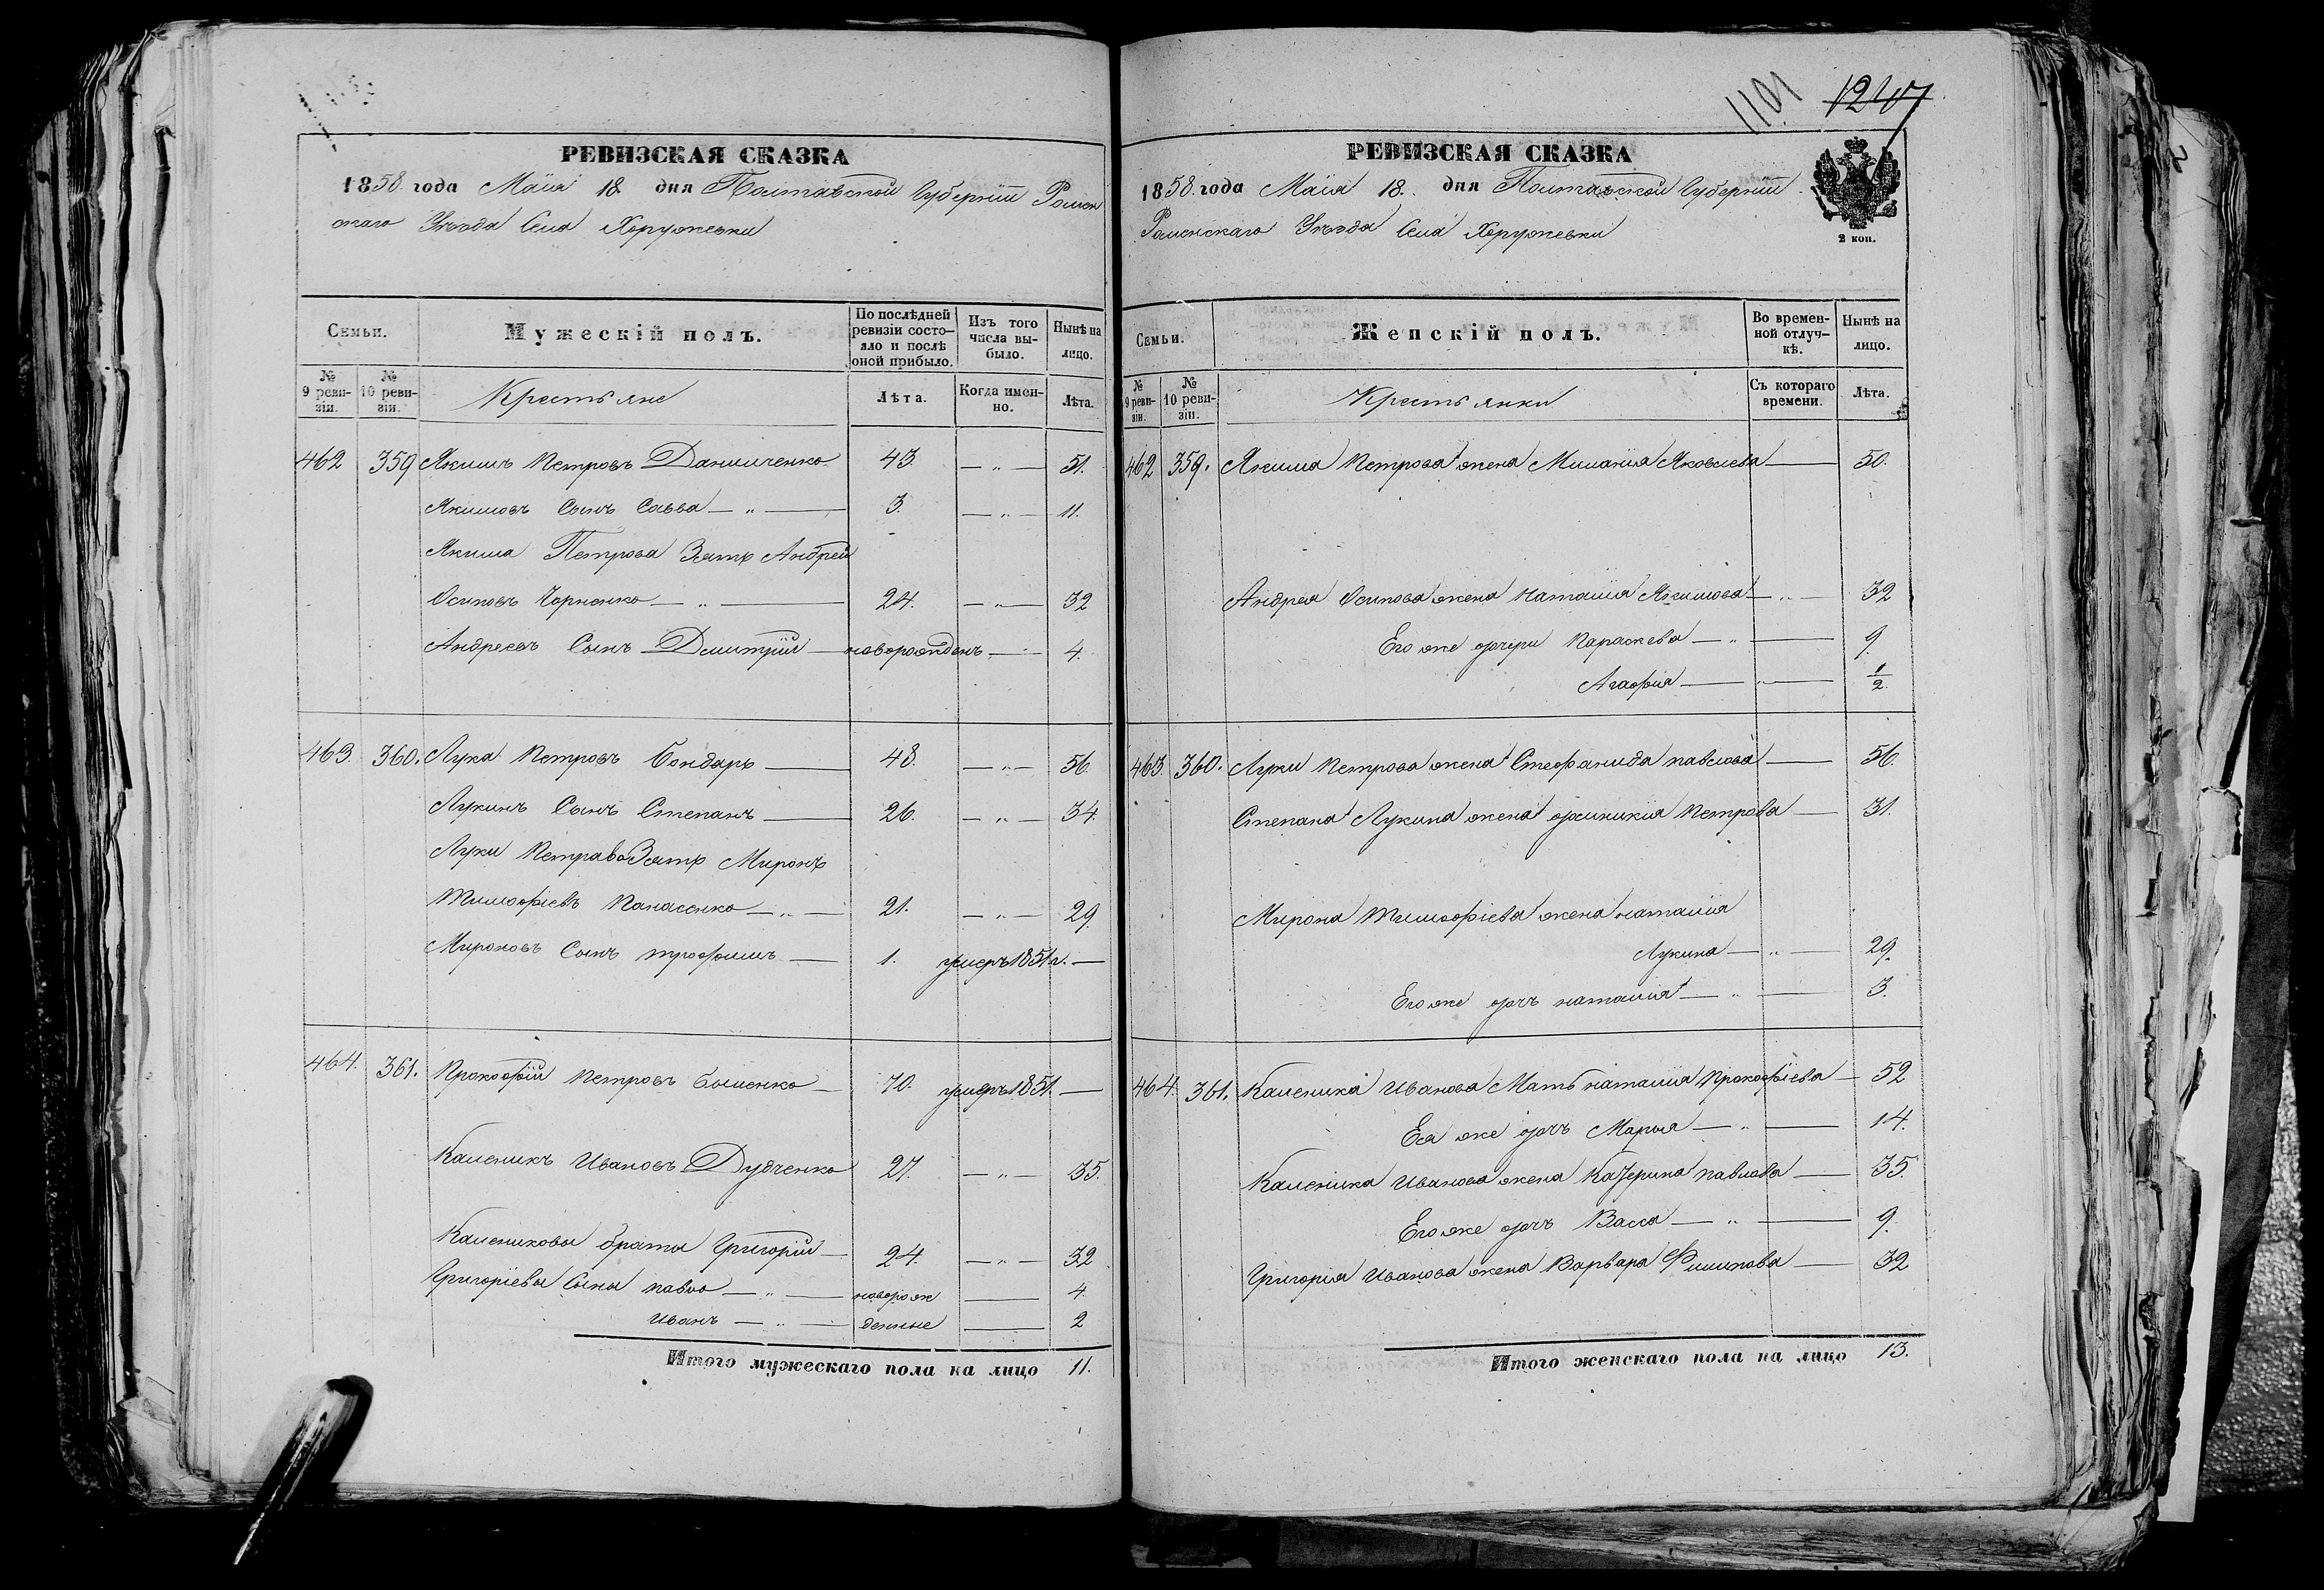 РЕВИЗСКАЯ СКАЗКА
1858. года Маія 18 дня Полтавской Губерніи Ромен
скаго Уѣзда Села Хоружевки
Семьи.
Мужескій полъ.
По послѣдней ревизіи состояло и послѣ оной прибыло.
Изъ того числа выбыло.
Нынѣ на лицо.
№ 9 ревизіи.
№ 10 ревизіи.
Крестьяне
Лѣта.
Когда именно.
Лѣта.
462 359 Якимъ Петровъ Данильченко 43. — „ — 51.
Якимовъ Сынъ Савва — „ — 3. — „ — 11.
Якима Петрова Зять Андрей
Осиповъ Чорненко — „ — 24. — „ — 32
Андреевъ Сынъ Дмитрій — новорожденъ — „ — 4.
463. 360. Лука Петровъ Бондарь — 48. — „ — 56.
Лукинъ Сынъ Степанъ — 26. — „ — 34.
Луки Петрова Зять Миронъ
Тимофіевъ Панасенко — „ — 21. — „ — 29
Мироновъ Сынъ трофимъ — 1. умеръ 1851 г. —
464. 361. Прокофій Петровъ — 70. умеръ 1851. —
Каленикъ Ивановъ Дудченко 27. — „ — 35.
Калениковы браты Григорій — 24. — „ — 32
Григоріевы Сыны павло — „ — новорож — 4.
Иванъ — „ — денные — 2
Итого мужескаго пола на лицо 11.
1101 1247
РЕВИЗСКАЯ СКАЗКА
1858. года Маія 18. дня Полтавской Губерніи
Роменскаго Уѣзда Села Хоружевки
2 коп.
Семьи.
Женскій полъ.
Во временной отлучкѣ.
Нынѣ на лицо.
№ 9 ревизіи.
№ 10 ревизіи.
Крестьянки
Съ котораго времени.
Лѣта.
462 359. Якима Петрова жена Миланія Яковлева — 50.
Андрея Осипова жена Наталія Якимова — „ — 32
Его же дочери Параскева — „ — 9.
Агафія — „ — 1/2.
463. 360. Луки Петрова жена Стефанида павлова — 56.
Степана Лукина жена Петрова — 31.
Мирона Тимофіева жена наталія
Лукина — „ — 29.
Его же дочь наталія — „ — 3.
464. 361. Каленика Иванова Мать наталія Прокофіева — 52
Ея же дочь Марья — „ — 14.
Каленика Иванова жена Катерина павлова — 35.
Его же дочь Васса — „ — 9.
Григорія Иванова жена Варвара Филипова — 32
Итого женскаго пола на лицо 13.